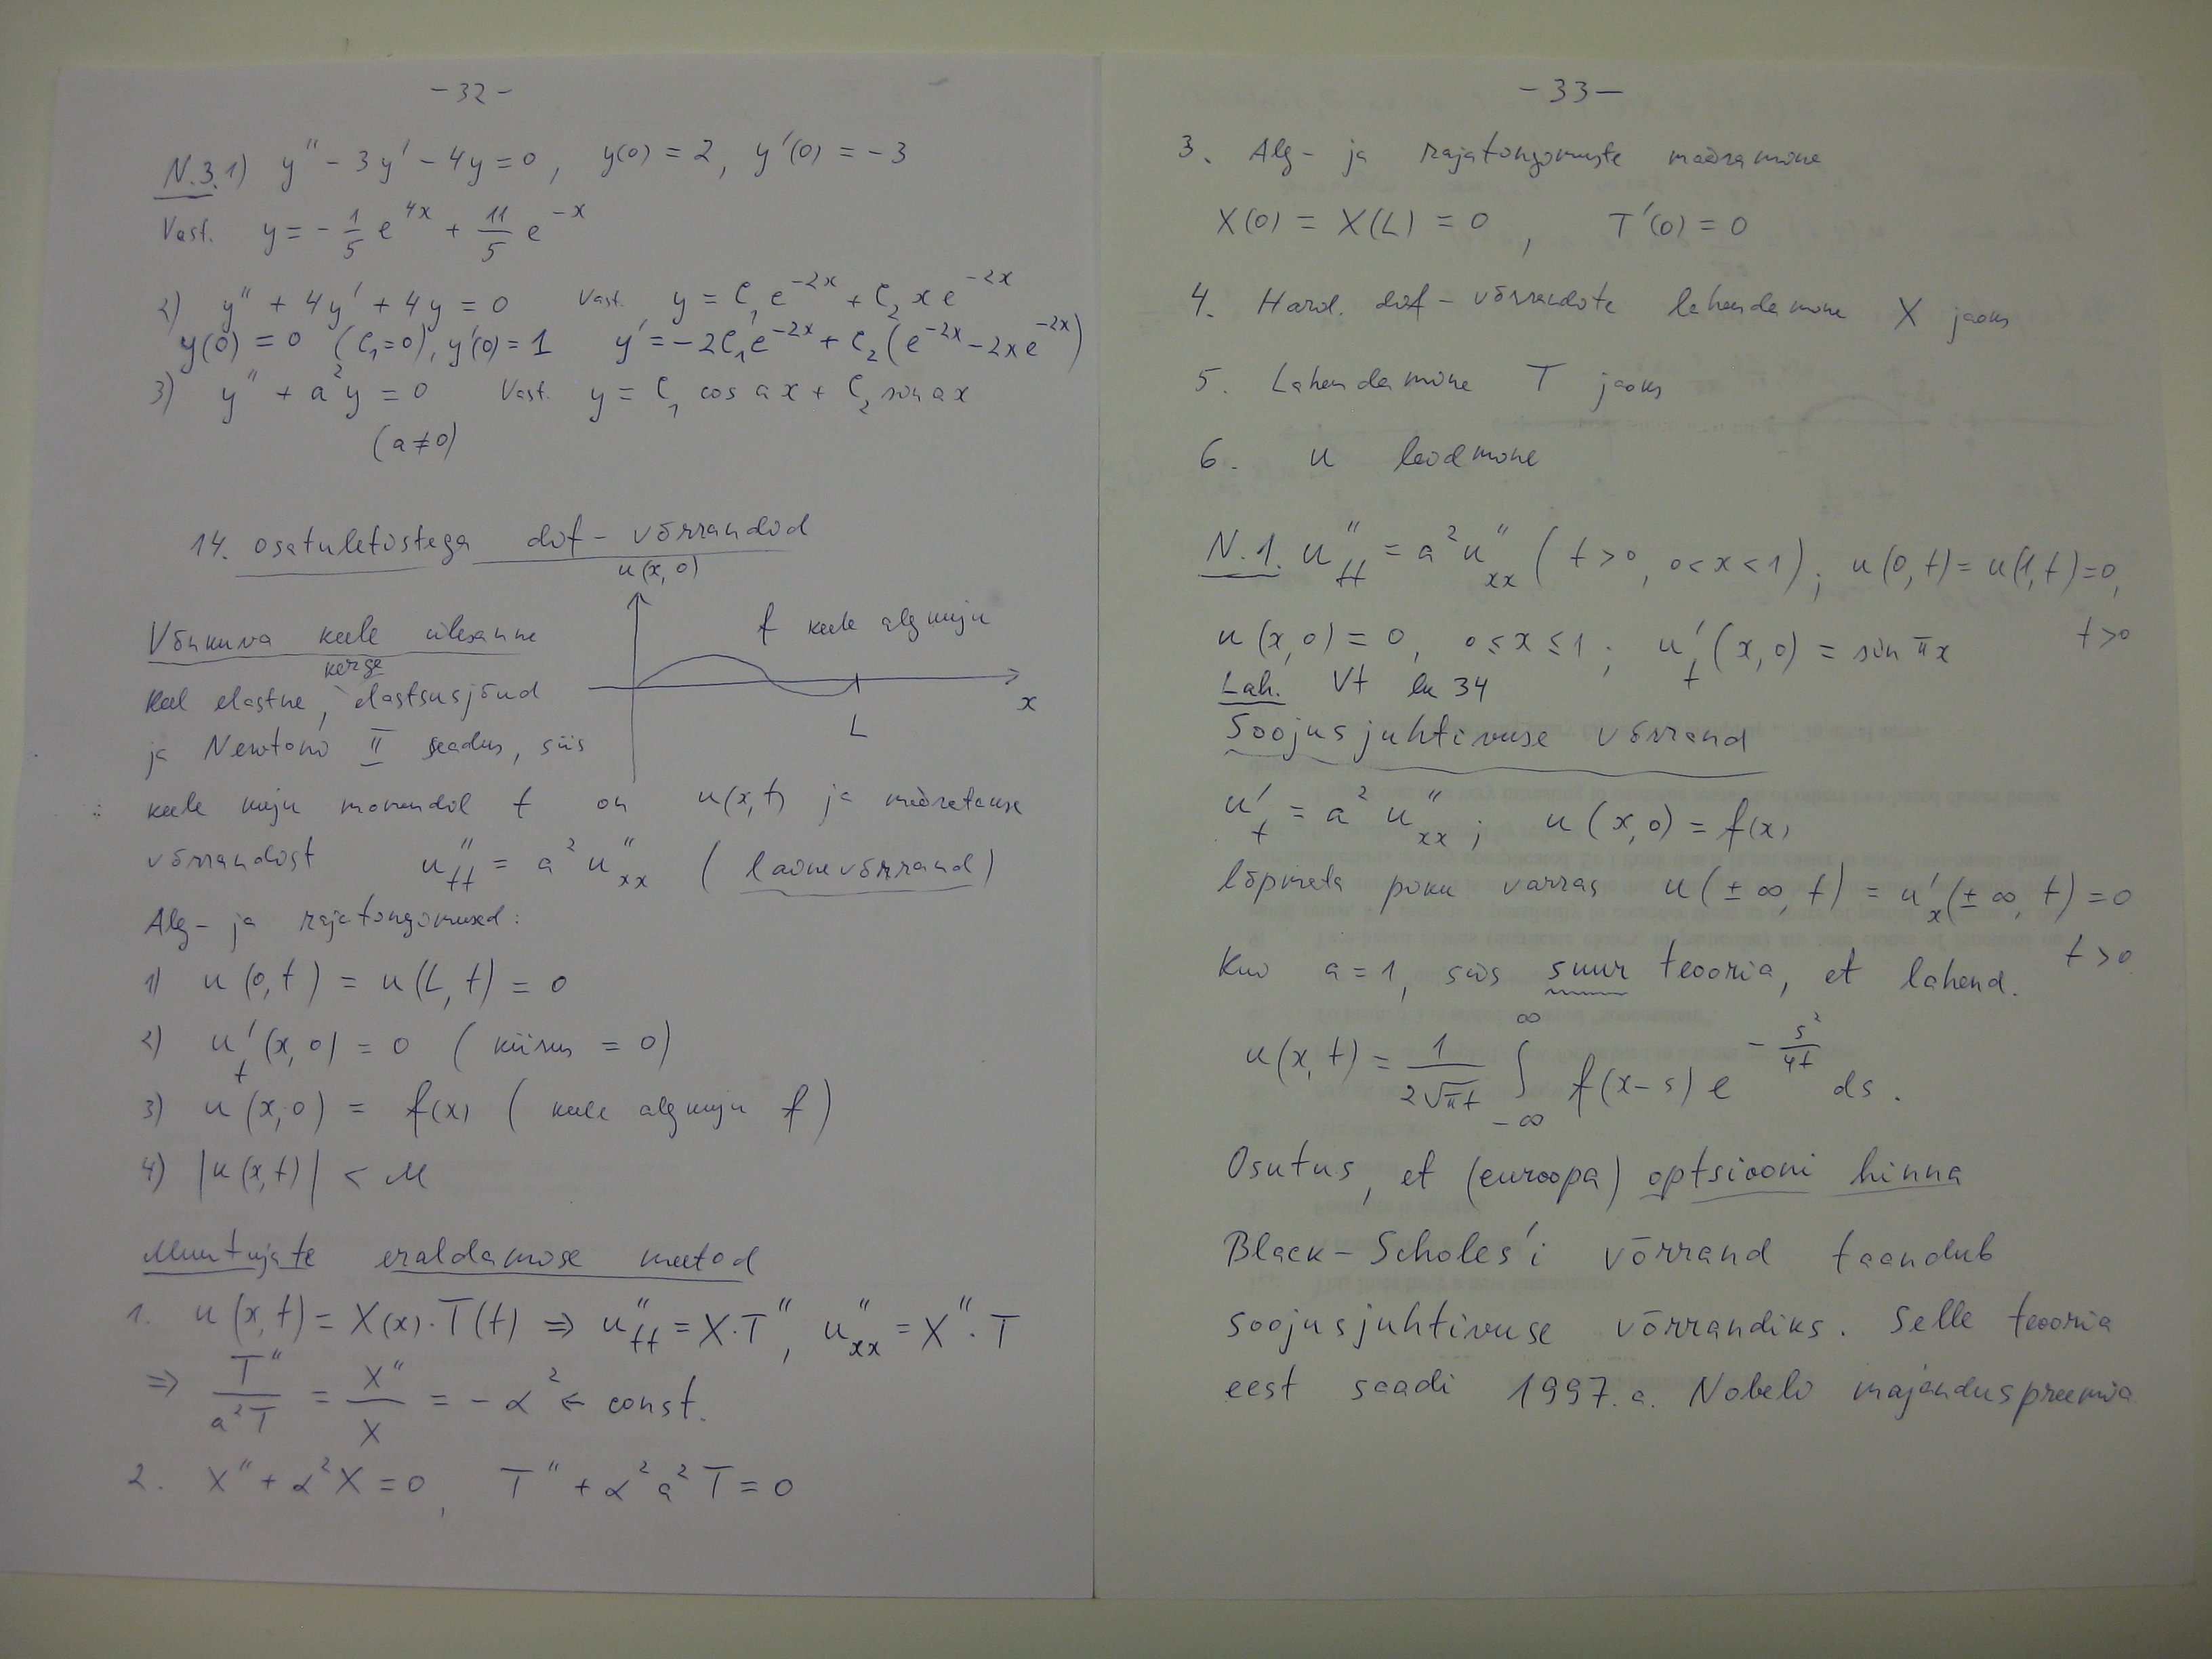 -32-
N.3.1) y'' - 3y' - 4y = 0, y(0) = 2, y'(0) = -3
Vast. y = -1/5 e^{4x} + 11/5 e^{-x}
2) y'' + 4y' + 4y = 0 Vast. y = C₁e^{-2x} + C₂xe^{-2x}
y(0) = 0 (C₁=0), y'(0) = 1 y' = -2C₁e^{-2x} + C₂(e^{-2x} - 2xe^{-2x})
3) y'' + a²y = 0 Vast. y = C₁ cos ax + C₂ sin ax
(a≠0)
14. Osatuletistega dif-võrrandid
u(x,0)
f keele algkuju
x
L
Võnkuva keele ülesanne
kerge
Keel elastne, elastsusjõud
ja Newtoni II seadus, siis
keele kuju momendil t on u(x,t) ja määratakse
võrrandist u''_{tt} = a² u''_{xx} (lainevõrrand)
Alg- ja rajatingimused:
1) u(0,t) = u(L,t) = 0
2) u'_t(x,0) = 0 (kiirus = 0)
3) u(x,0) = f(x) (keele algkuju f)
4) |u(x,t)| < M
Muutujate eraldamise meetod
1. u(x,t) = X(x)·T(t) ⇒ u''_{tt} = X·T'', u''_{xx} = X''·T
⇒ T''/(a²T) = X''/X = -α² ← const.
2. X'' + α²X = 0, T'' + α²a²T = 0
-33-
3. Alg- ja rajatingimuste määramine
X(0) = X(L) = 0, T'(0) = 0
4. Haril. dif-võrrandite lahendamine X jaoks
5. Lahendamine T jaoks
6. u leidmine
N.1. u''_{tt} = a²u''_{xx} (t>0, 0<x<1); u(0,t) = u(1,t) = 0,
t>0
u(x,0) = 0, 0≤x≤1; u'_t(x,0) = sin πx
Lah. Vt lk 34
Soojusjuhtivuse võrrand
u'_t = a² u''_{xx}; u(x,0) = f(x)
lõpmata pikk varras u(±∞,t) = u'_x(±∞,t) = 0
t>0
Kui a=1, siis suur teooria, et lahend.
u(x,t) = 1/(2√(πt)) ∫_{-∞}^{∞} f(x-s) e^{-s²/(4t)} ds.
Osutus, et (euroopa) optsiooni hinna
Black-Scholes'i võrrand taandub
soojusjuhtivuse võrrandiks. Selle teooria
eest saadi 1997.a. Nobeli majanduspreemia